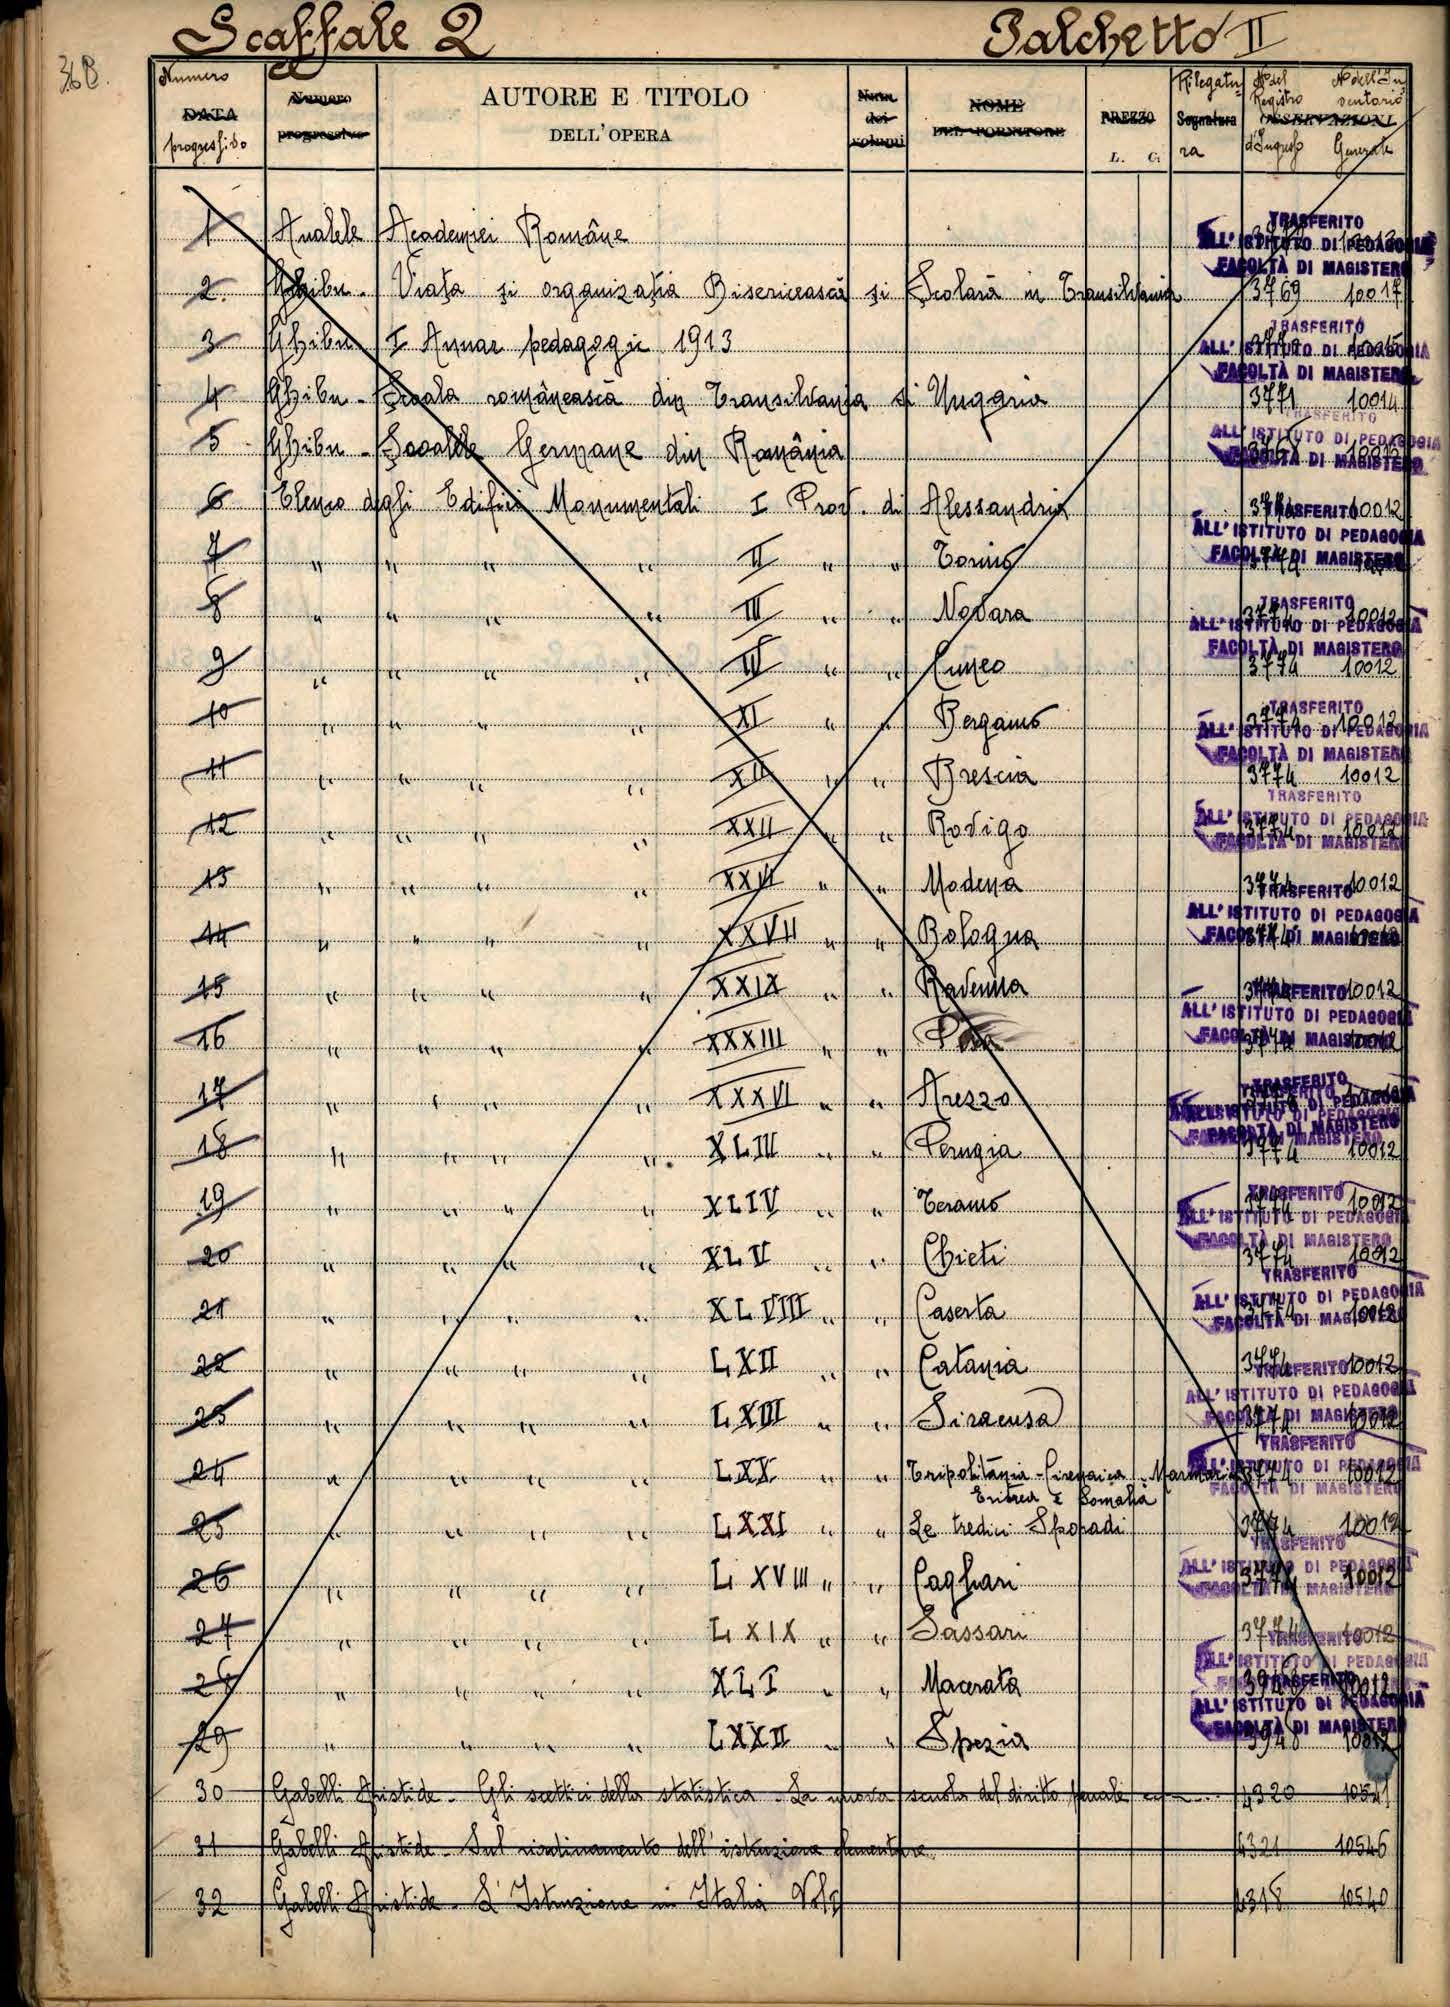 Scaffale 2 Palchetto II
36B.
Numero DATA progressivo Numero progressivo AUTORE E TITOLO DELL'OPERA Num. dei volumi NOME DEL FORNITORE PREZZO L. C. Rilegatu- Segnatura ra No del Registro d'Ingresso OSSERVAZIONI No dell'In- ventario Generale
1 Analele Academiei Române
2. Ghibu - Viața și organizația Bisericească și Școlară in Transilvania 3769 10017
3 Ghibu I Anuar pedagogic 1913
4 Ghibu - Școala românească din Transilvania si Ungaria 3771 10014
5 Ghibu - Școalele Germane din România
6 Elenco degli Edifici Monumentali I Prov. di Alessandria 3774 10012
7 " " " " II " " Torino
8 " " " " III " " Novara 3774 10012
9 " " " " IV " " Cuneo 3774 10012
10 " " " " XI " " Bergamo 3774 10012
11 " " " " XII " " Brescia 3774 10012
12 " " " " XXII " " Rovigo 3774 10012
13 " " " " XXVI " " Modena 3774 10012
14 " " " " XXVII " " Bologna
15 " " " " XXIX " " Ravenna 10012
16 " " " " XXXIII " " 3774 10012
17 " " " " XXXVI " " Arezzo
18 " " " " XLIII " " Perugia 3774 10012
19 " " " " XLIV " " Teramo 3774 10012
20 " " " " XLV " " Chieti 3774 10012
21 " " " " XLVIII " " Caserta 3774 10012
22 " " " " LXII " " Catania 3774 10012
23 " " " " LXIII " " Siracusa 3774 10012
24 " " " " LXX " " Tripolitania - Cirenaica - Marmarica 3774 10012
Eritrea e Somalia
25 " " " " LXXI " " Le tredici Sporadi 3774 10012
26 " " " " LXVIII " " Cagliari 3774 10012
27 " " " " LXIX " " Sassari 3774 10012
28 " " " " XLI " " Macerata 3948 10012
29 " " " " LXXII " " Spezia 3948 10012
30 Gabelli Aristide - Gli scettici della statistica - La nuova scuola del diritto penale 4320 10541
31 Gabelli Aristide - Sul riordinamento dell'istruzione elementare 4321 10546
32 Gabelli Aristide - L'Istruzione in Italia Vol I 4318 10540
TRASFERITO
ALL'ISTITUTO DI PEDAGOGIA
FACOLTÀ DI MAGISTERO